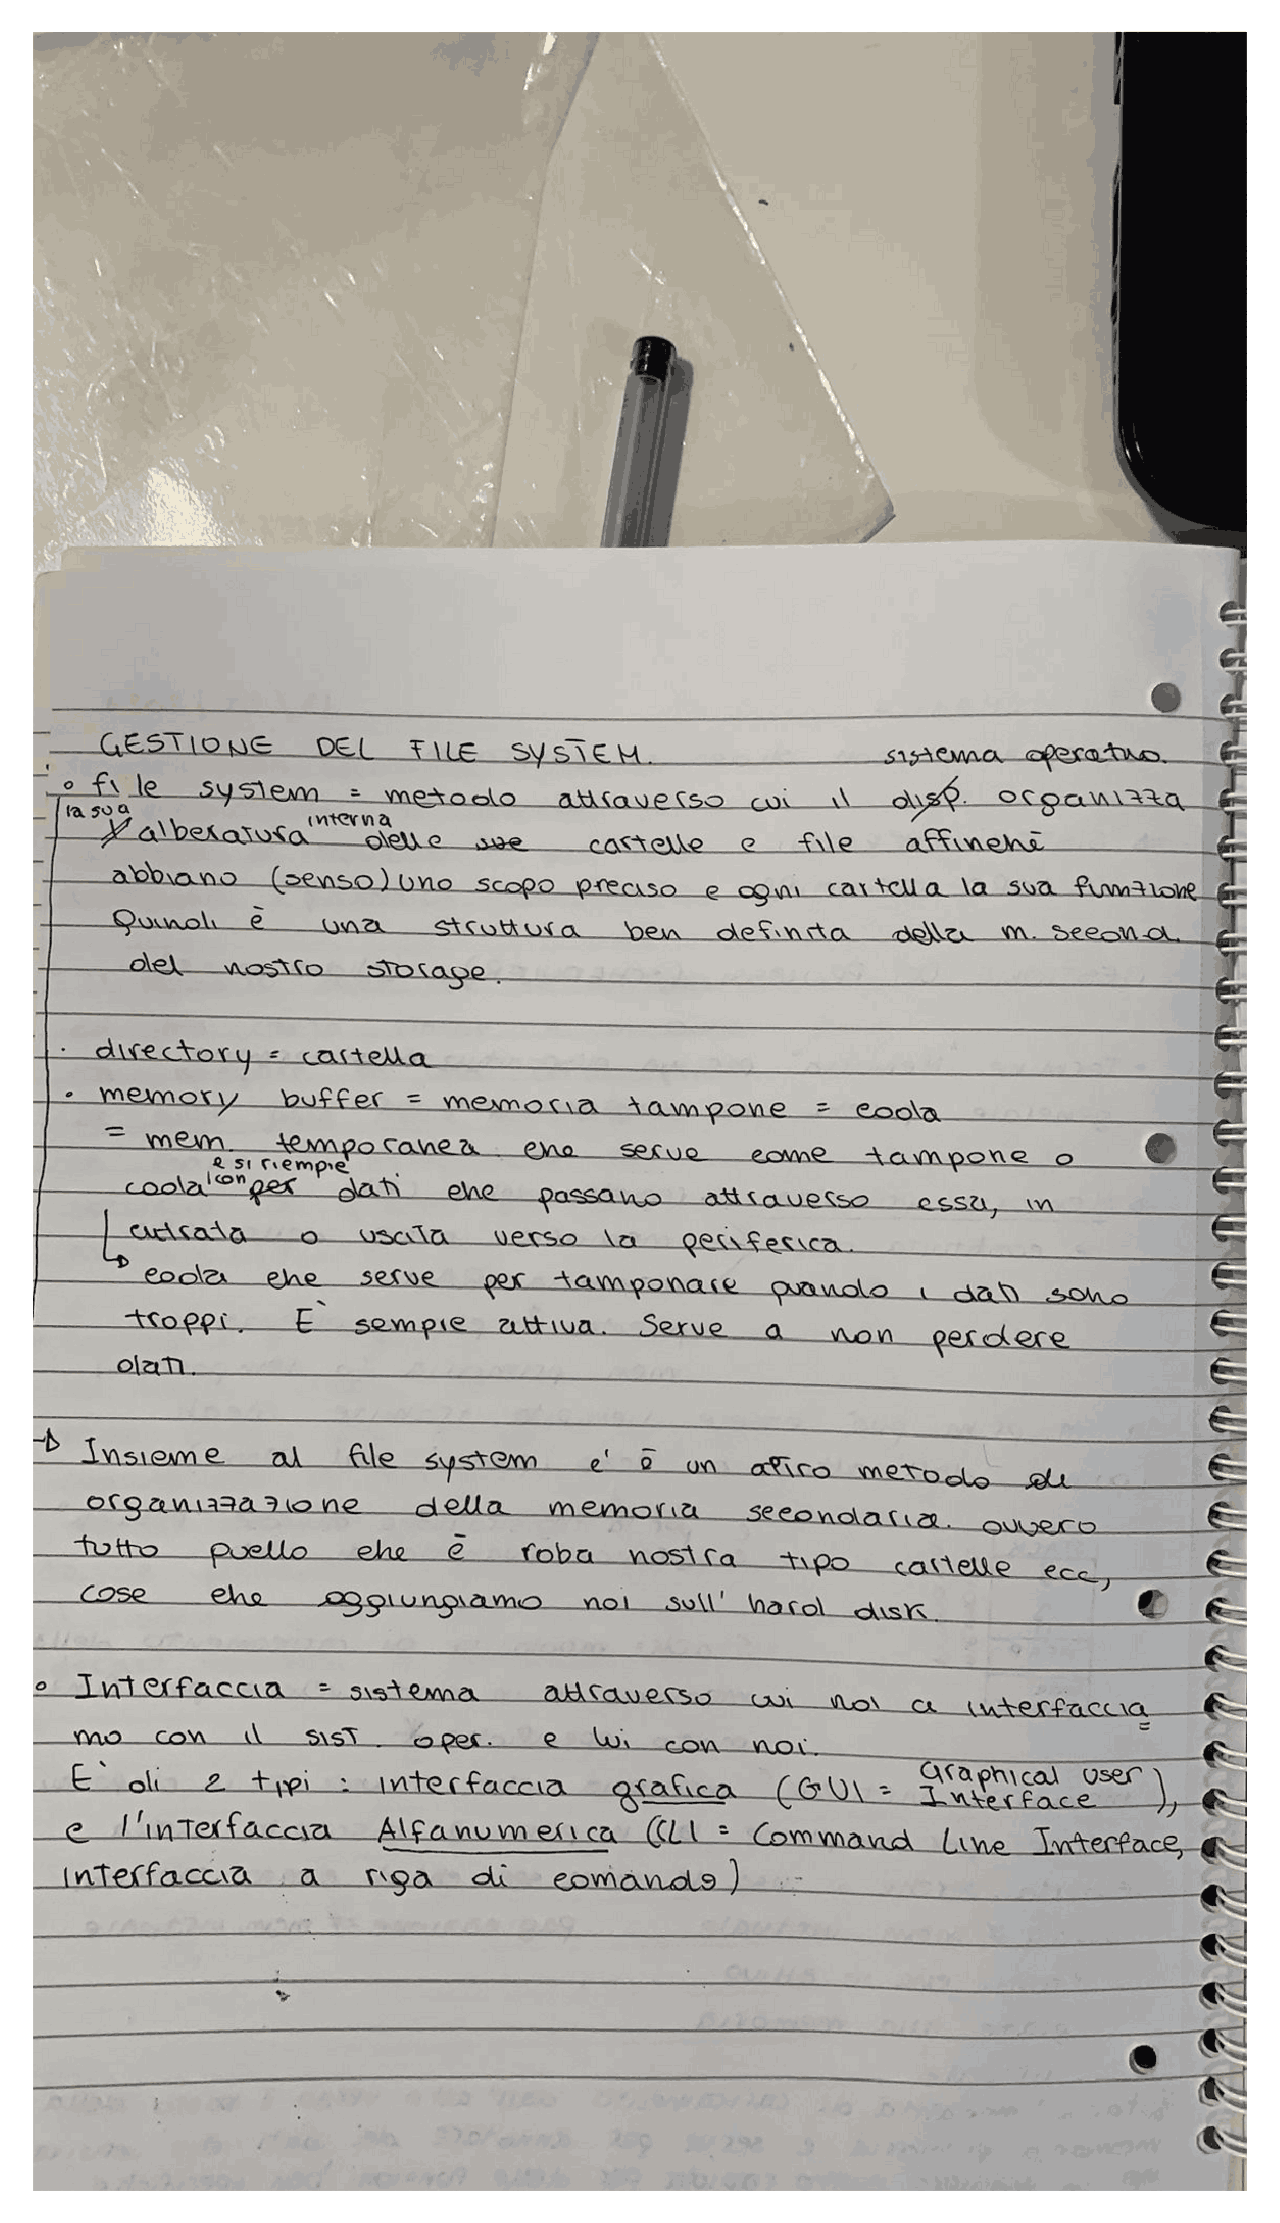 GESTIONE DEL FILE SYSTEM.
sistema operativo.
° file system = metodo attraverso cui il disp. organizza
la sua alberatura interna delle sue cartelle e file affinché
abbiano (senso) uno scopo preciso e ogni cartella la sua funzione
Quindi è una struttura ben definita della m. second.
del nostro storage.
· directory = cartella
· memory buffer = memoria tampone = coda
= mem. temporanea che serve come tampone o
e si riempie
coda con per dati che passano attraverso essa, in
entrata o uscita verso la periferica.
↳ coda che serve per tamponare quando i dati sono
troppi. È sempre attiva. Serve a non perdere
dati.
→ Insieme al file system c'è un altro metodo di
organizzazione della memoria secondaria. ovvero
tutto quello che è roba nostra tipo cartelle ecc,
cose che aggiungiamo noi sull'hard disk.
° Interfaccia = sistema attraverso cui noi ci interfaccia
mo con il sist. oper. e lui con noi.
E' di 2 tipi : interfaccia grafica (GUI = Graphical User Interface),
e l'interfaccia Alfanumerica (CLI = Command Line Interface,
interfaccia a riga di comando)